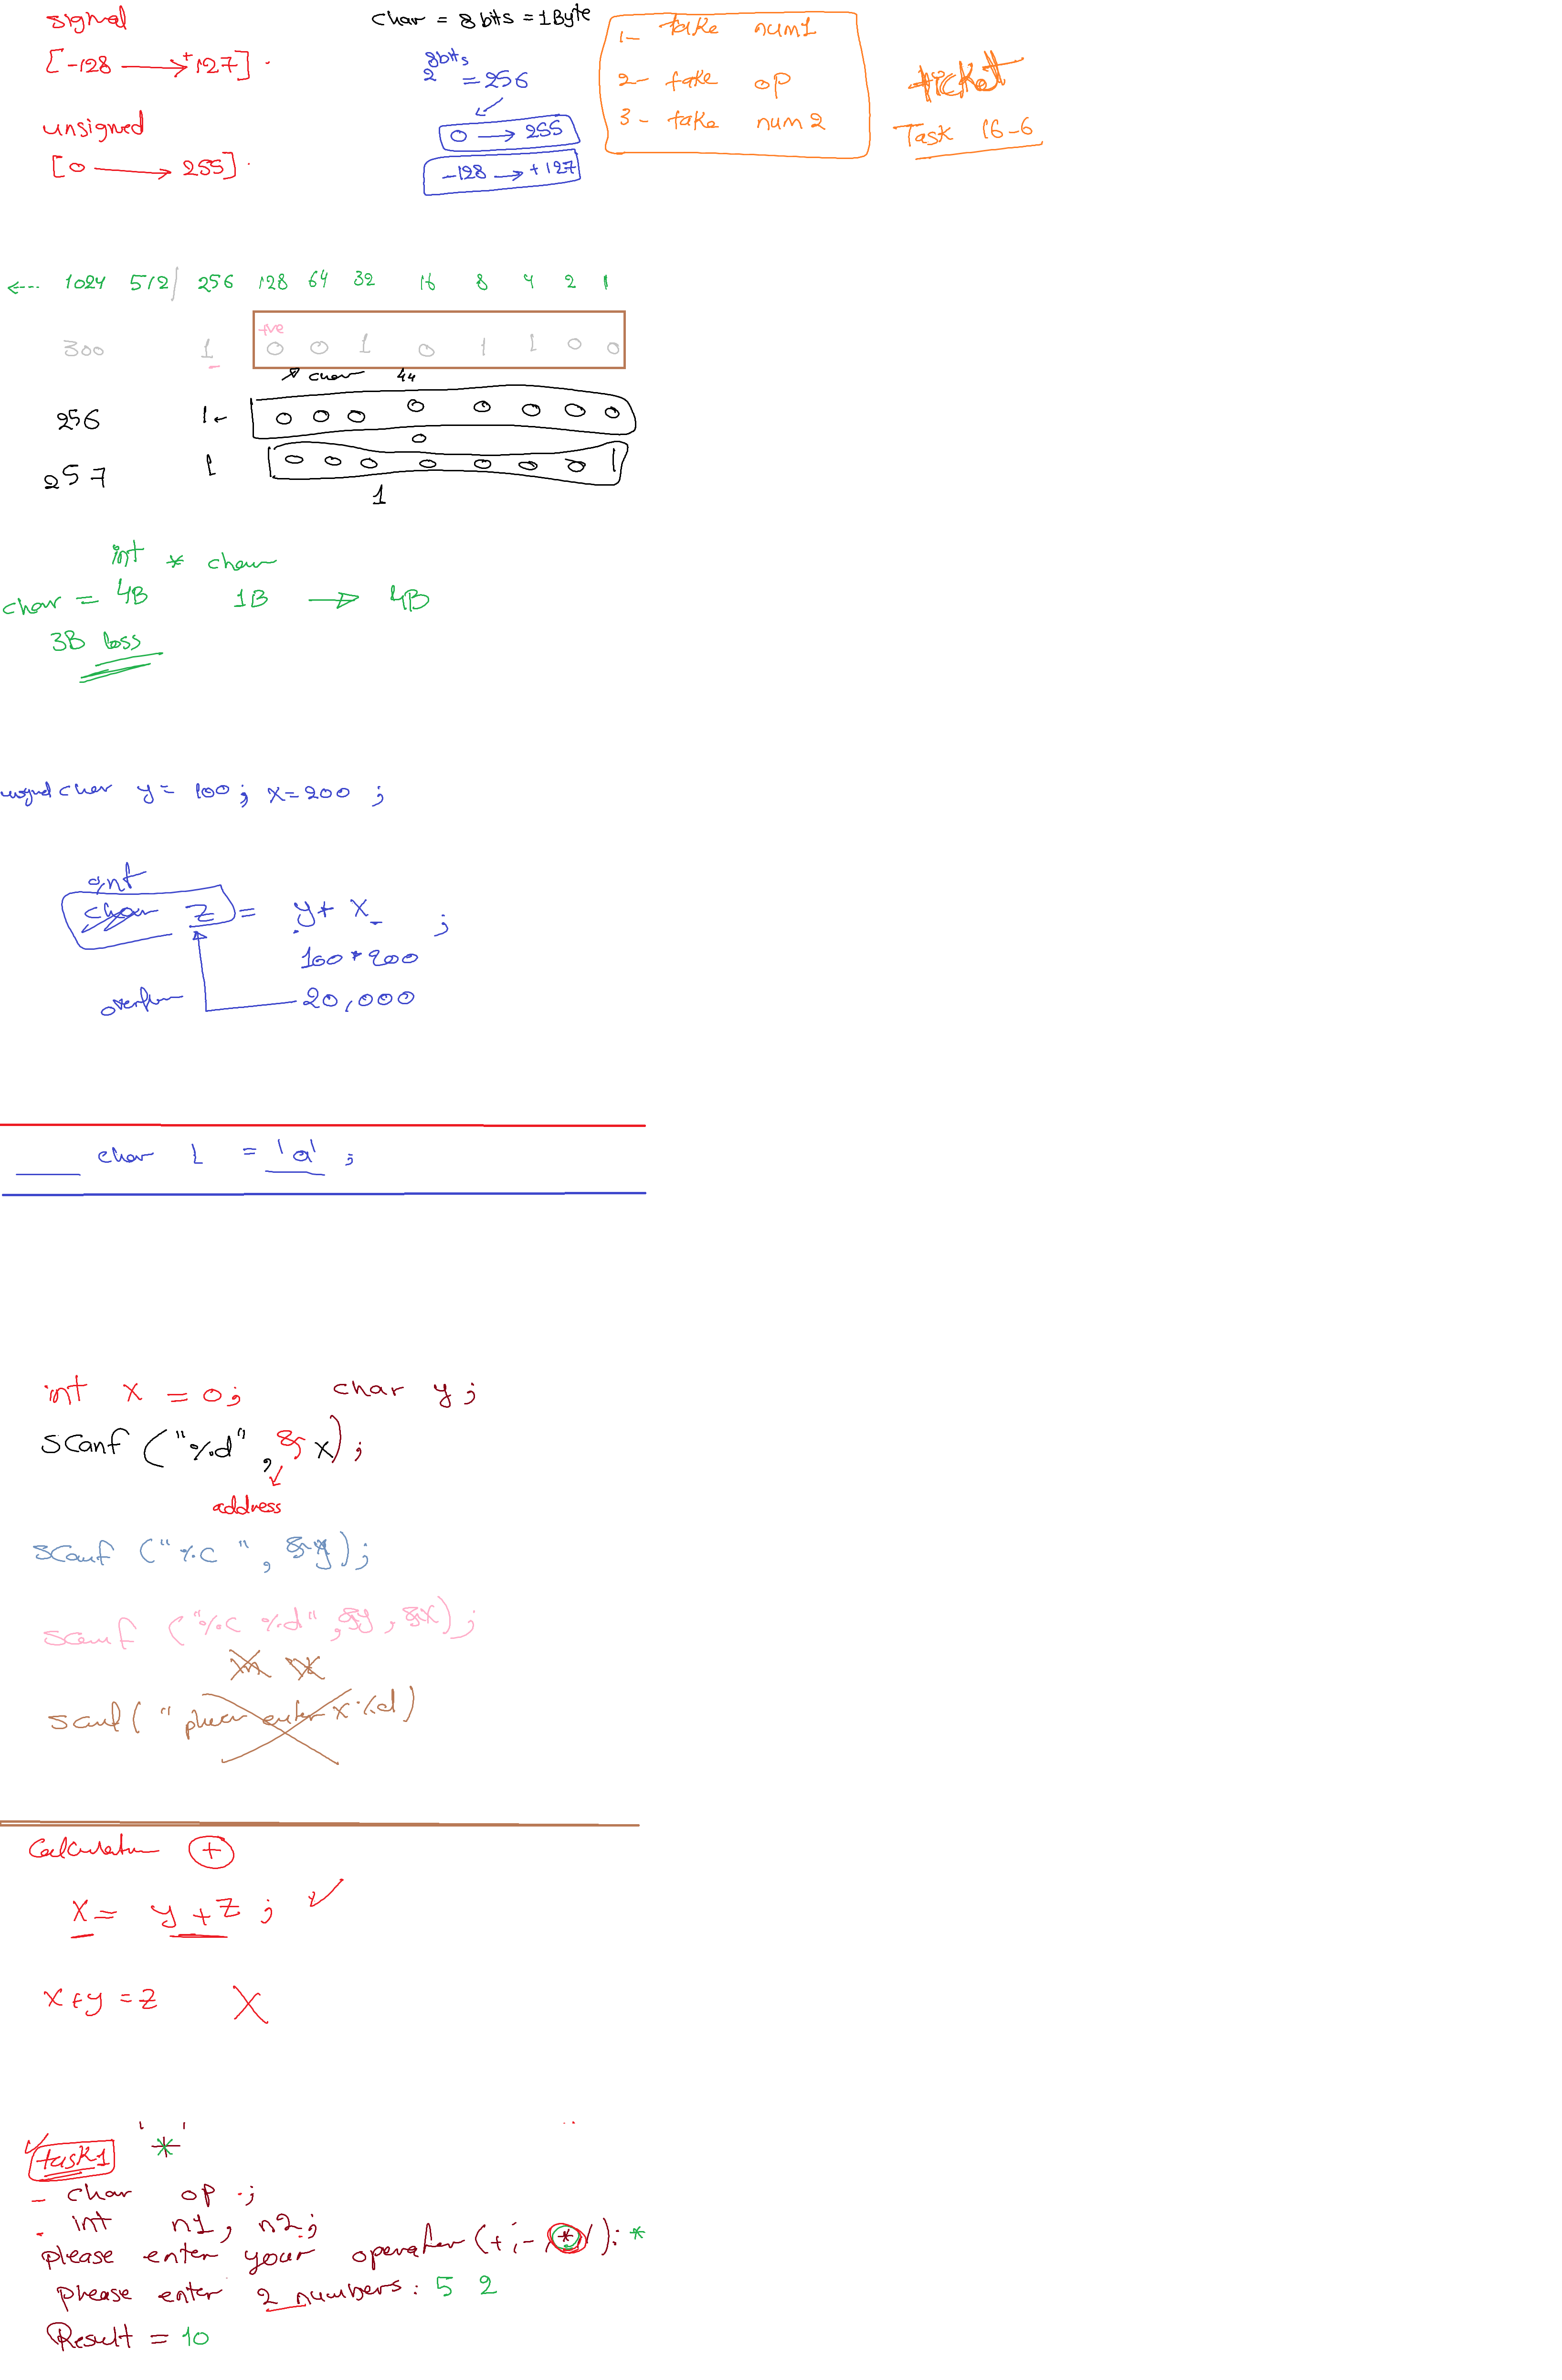 signed
[-128 → +127].
unsigned
[0 → 255].
char = 8 bits = 1 Byte
8bits
2 = 256
0 → 255
-128 → +127
1- take num1
2- take op
3- take num2
ticket
Task 16-6
<--- 1024 512 / 256 128 64 32 16 8 4 2 1
+ve
300 1 0 0 1 0 1 1 0 0
char 44
256 1 ← 0 0 0 0 0 0 0 0
0
257 1 0 0 0 0 0 0 0 1
1
int * char
char = 4B 1B → 4B
3B loss
unsigned char y = 100; x = 200 ;
int
char z = y + x ;
100 * 200
overflow 20,000
char L = 'a' ;
int x = 0; char y ;
scanf ("%d" , & x) ;
address
scanf ("%c ", &y) ;
scanf ("%c %d", &y , &x) ;
scanf ( " please enter x %d )
Calculator +
x = y + z ; ✓
x + y = z X
✓
task1 '*'
- char op ;
- int n1, n2;
please enter your operator (+,-,*,/): *
please enter 2 numbers: 5 2
Result = 10